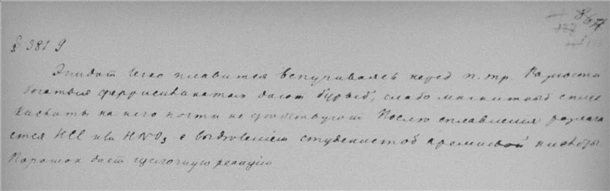 § 381 g
Эпидот легко плавится вспучиваясь перед п. тр. Разности
богатые ферросиликатом дают бурый, слабо магнитный сплав
Кислоты на него почти не действуют После сплавления разлага
ется HCl или HNO3 с выделением студенистой кремневой кислоты
Порошок дает щелочную реакцию